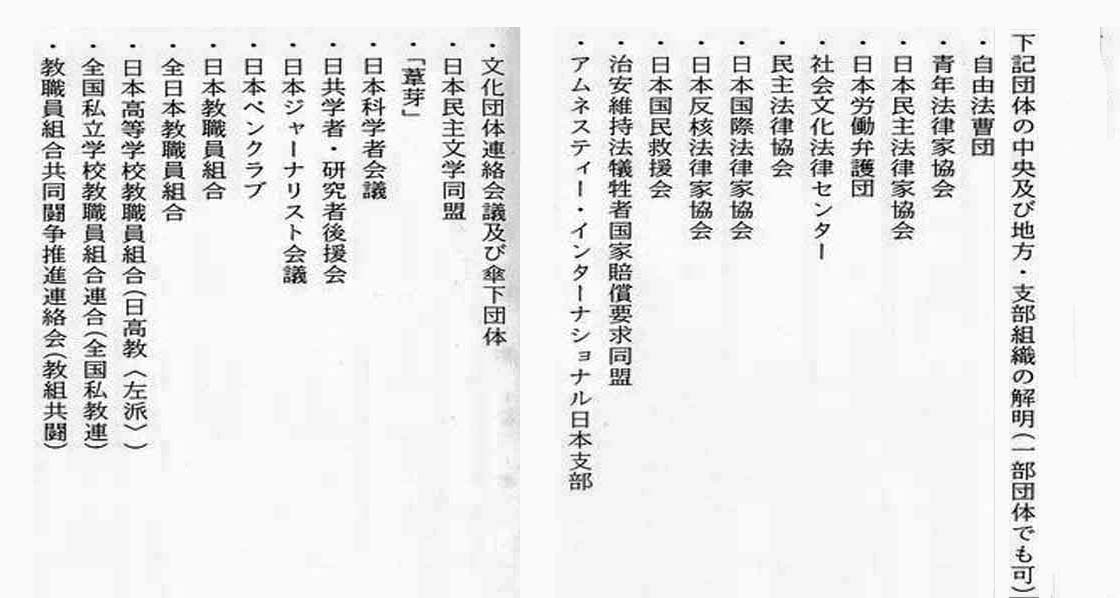 下記団体の中央及び地方・支部組織の解明(一部団体でも可)
・自由法曹団
・青年法律家協会
・日本民主法律家協会
・日本労働弁護団
・社会文化法律センター
・民主法律協会
・日本国際法律家協会
・日本反核法律家協会
・日本国民救援会
・治安維持法犠牲者国家賠償要求同盟
・アムネスティー・インターナショナル日本支部
・文化団体連絡会議及び傘下団体
・日本民主文学同盟
・「葦芽」
・日本科学者会議
・日共学者・研究者後援会
・日本ジャーナリスト会議
・日本ペンクラブ
・日本教職員組合
・全日本教職員組合
・日本高等学校教職員組合(日高教〈左派〉)
・全国私立学校教職員組合連合(全国私教連)
・教職員組合共同闘争推進連絡会(教組共闘)